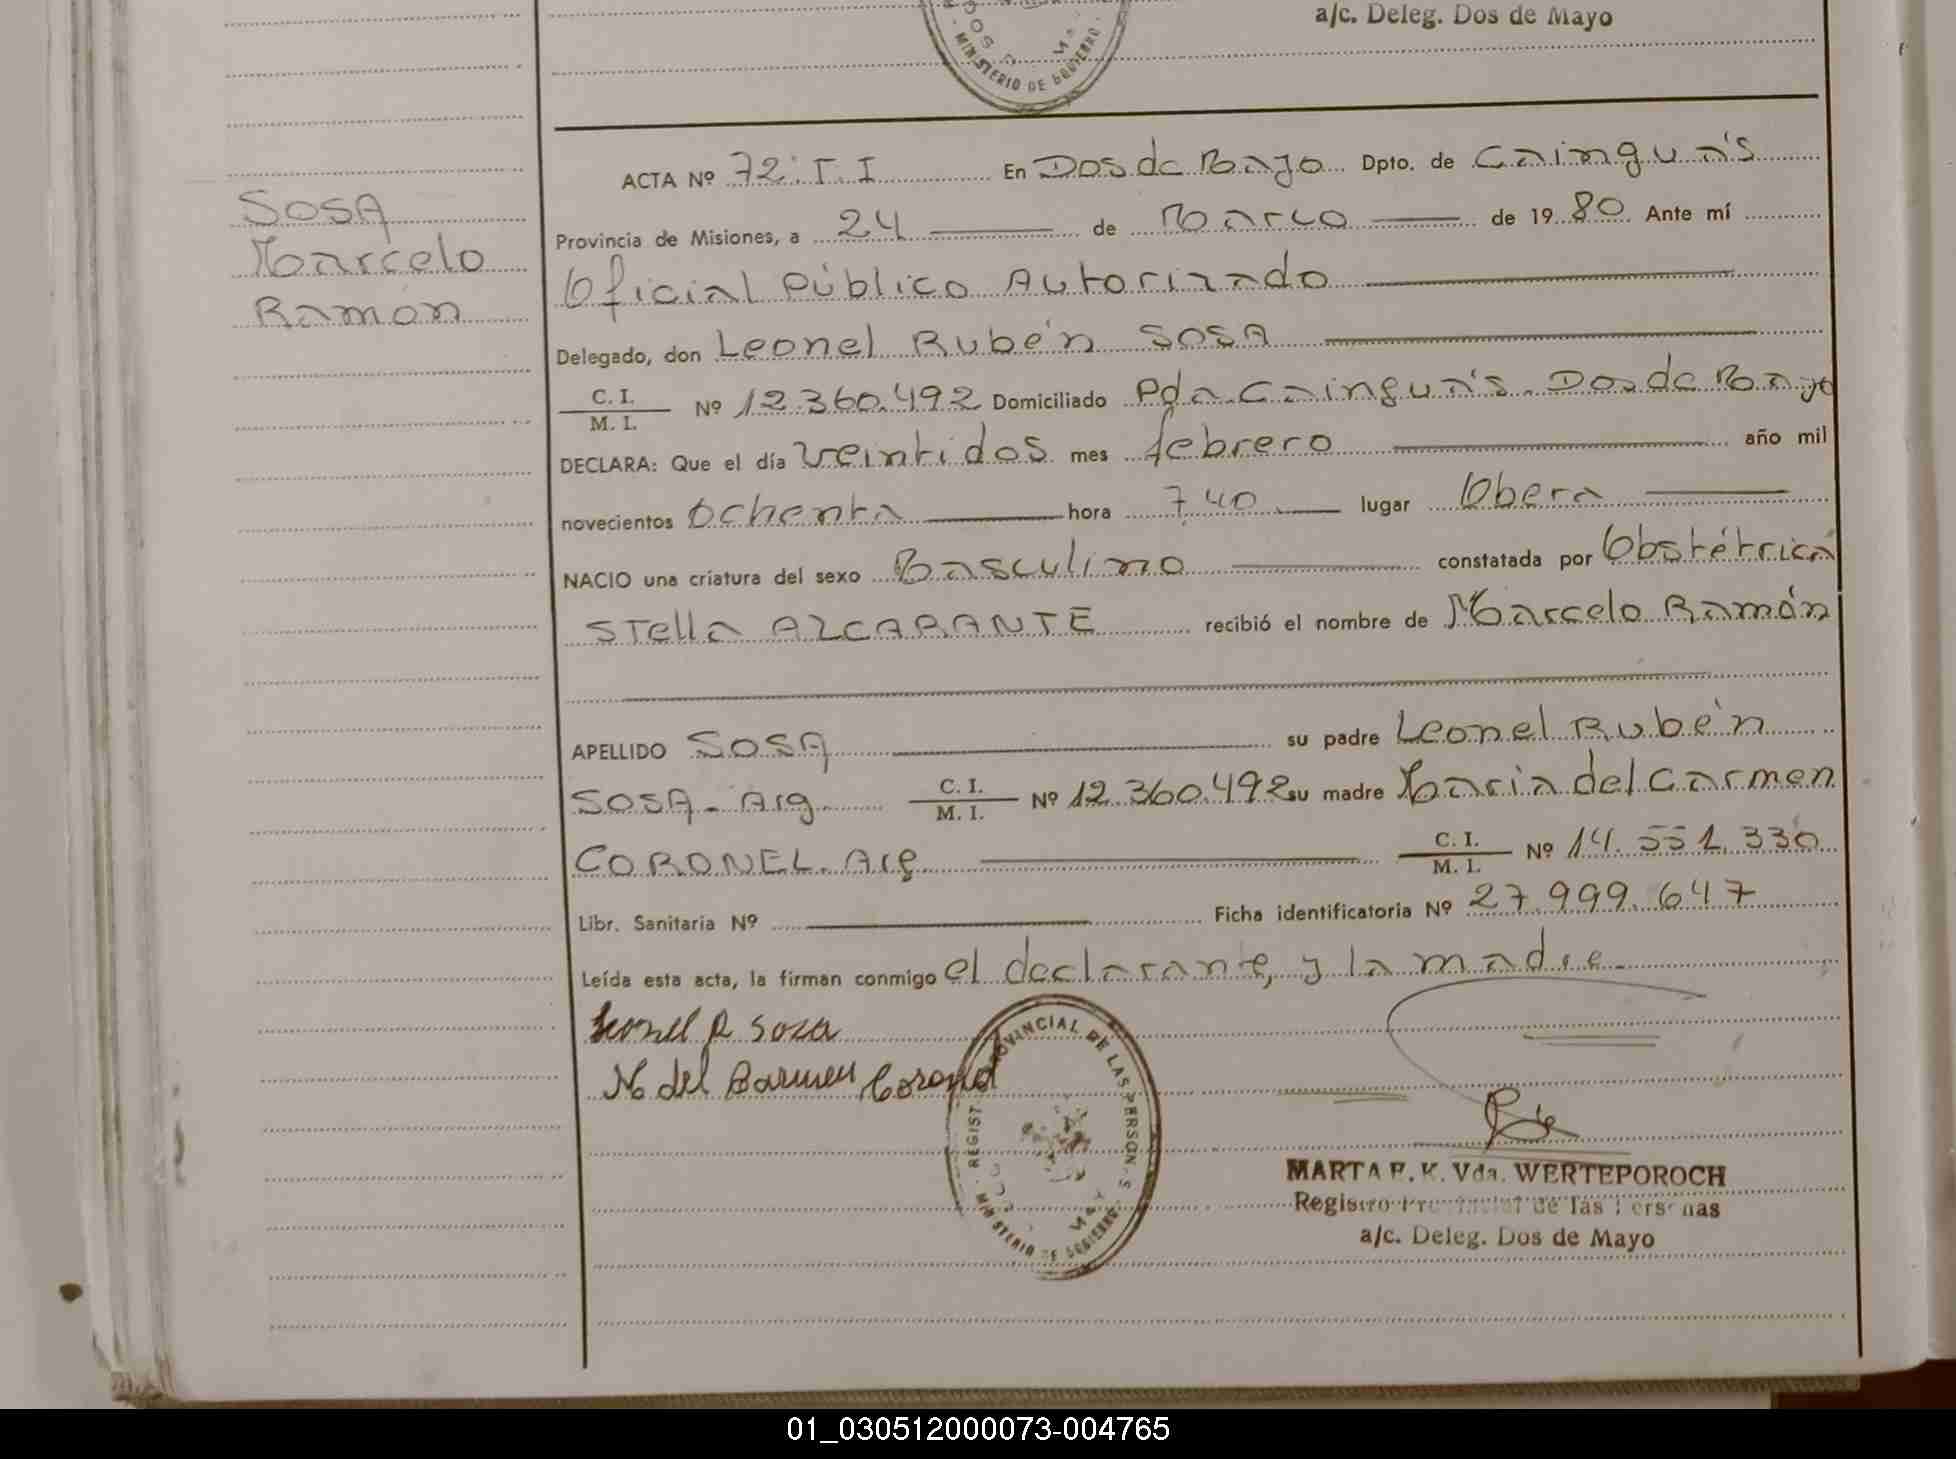 a/c. Deleg. Dos de Mayo
MINISTERIO DE GOBIERNO
SOSA
Marcelo
Ramón
ACTA Nº 72. T. I En Dos de Mayo Dpto. de Cainguás
Provincia de Misiones, a 24 de Marzo de 1980 Ante mí
Oficial Público Autorizado
Delegado, don Leonel Rubén SOSA
C. I.
M. I. Nº 12.360.492 Domiciliado Pda Cainguás. Dos de Mayo
DECLARA: Que el día veintidos mes febrero año mil
novecientos ochenta hora 7,40 lugar Obera
NACIO una criatura del sexo Masculino constatada por Obstétrica
Stella recibió el nombre de Marcelo Ramón
APELLIDO SOSA su padre Leonel Rubén
SOSA - Arg. C. I. M. I. Nº 12.360.492 su madre Maria del Carmen
CORONEL. Arg. C. I. M. I. Nº 14.551.330
Libr. Sanitaria Nº Ficha identificatoria Nº 27.999.647
Leída esta acta, la firman conmigo el declarante, y la madre.
Leonel R Sosa
M del Carmen Coronel
REGIST PROVINCIAL DE LAS PERSONAS
MINISTERIO DE GOBIERNO
MARTA E. K. Vda. WERTEPOROCH
Registro Provincial de las Personas
a/c. Deleg. Dos de Mayo
01_030512000073-004765